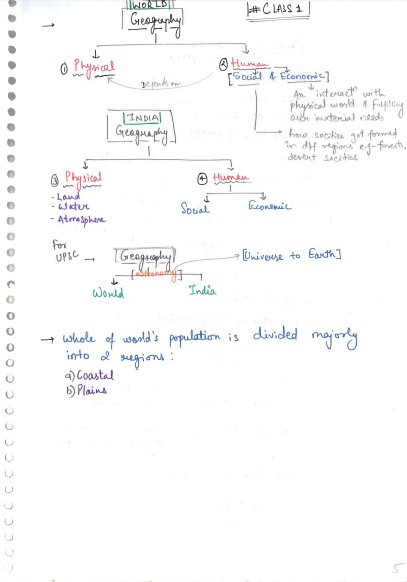 WORLD
# CLASS 1
→ Geography
① Physical
② Human
Depends on
[Social & Economic]
An interact with
physical world & fulfilling
own material needs
how socities got formed
in diff regions e.g-forests,
desert socities
INDIA
Geography
③ Physical
④ Human
- Land
- Water
- Atmosphere
Social
Economic
For
UPSC →
Geography
[astronomy]
[Universe to Earth]
World
India
→ Whole of world's population is divided majorly
into 2 regions :
a) Coastal
b) Plains
5